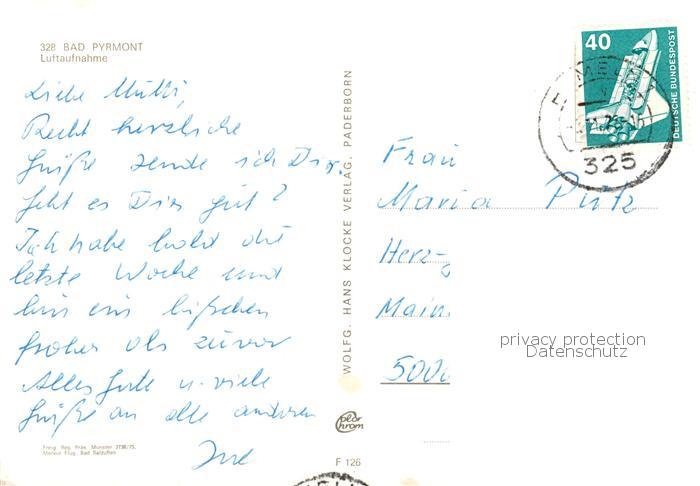 328 BAD PYRMONT
Luftaufnahme
Liebe Mutti,
Recht herzliche
Grüße sende ich Dir.
Geht es Dir gut?
Ich habe bald die
letzte Woche und
bin ein bißchen
froher als zuvor
Alles Gute u. viele
Grüße an alle anderen
Freig. Reg. Präs. Münster 3738/75,
Merkur Flug, Bad Salzuflen
WOLFG. HANS KLOCKE VERLAG, PADERBORN
F 126
40
DEUTSCHE BUNDESPOST
325
Frau
Maria Pütz
Herz-
Main
5000
privacy protection
Datenschutz